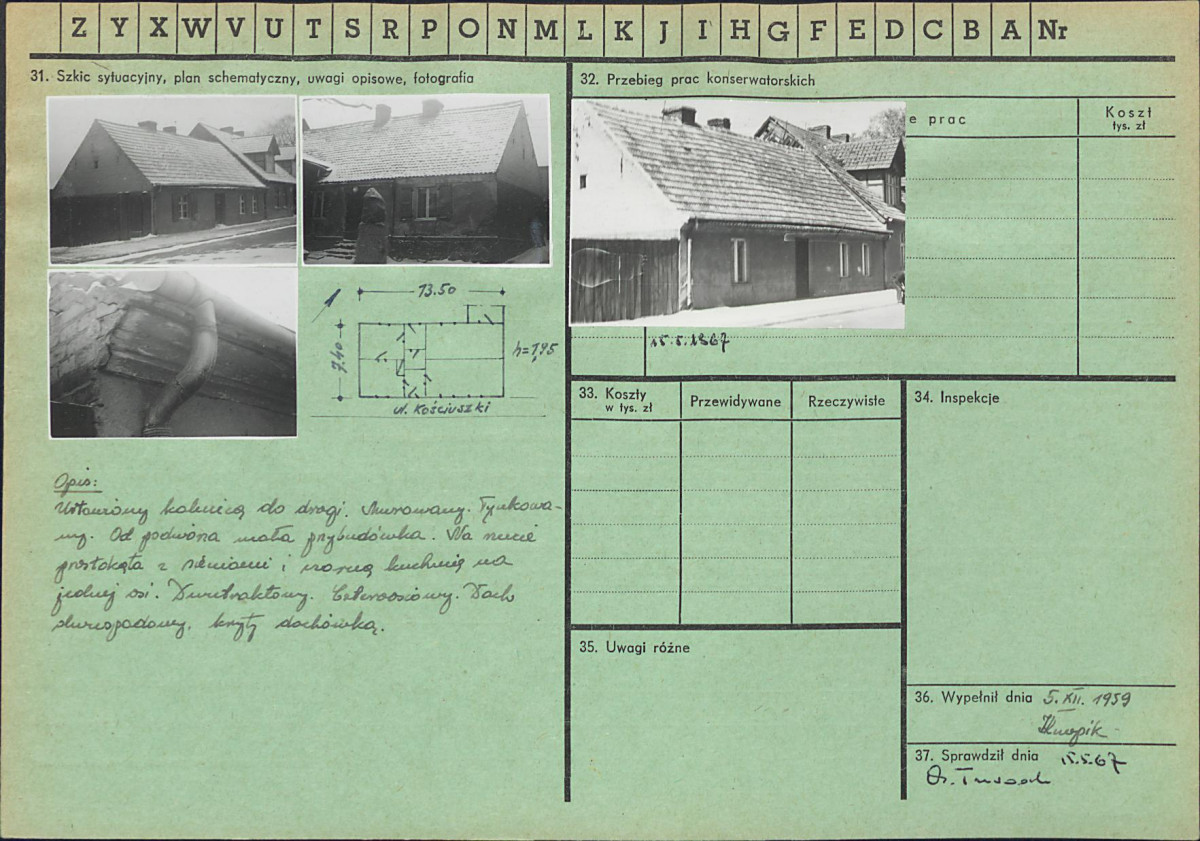 Z Y X W V U T S R P O N M L K J I H G F E D C B A Nr
31. Szkic sytuacyjny, plan schematyczny, uwagi opisowe, fotografia
13.50
7.40
h=
ul. Kościuszki
Opis:
Ustawiony kalenicą do drogi. Murowany. Tynkowa-
ny. Od podwórza mała przybudówka. Na rzucie
prostokąta z sieniami i czarną kuchnią na
jednej osi. Dwutraktowy. Czteroosiowy. Dach
dwuspadowy, kryty dachówką.
32. Przebieg prac konserwatorskich
e prac
Koszt
tys. zł
15.5.1967
33. Koszty
w tys. zł
Przewidywane
Rzeczywiste
34. Inspekcje
35. Uwagi różne
36. Wypełnił dnia 5. XII. 1959
37. Sprawdził dnia 15.5.67